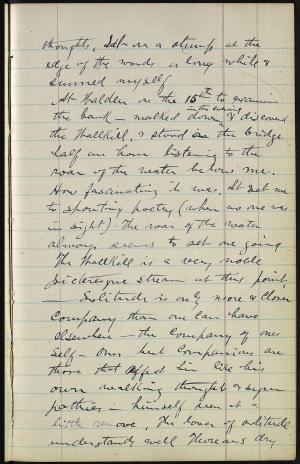 thoughts, Sat on a stump at the
edge of the woods a long while &
sunned myself
At Walden on the 15th to examine
the bank — walked down in the evening & discovered
the Wallkill, & stood on the bridge
half an hour listening to the
roar of the water below me.
How fascinating it was. It set me
to spouting poetry (when no one was
in sight). The roar of the water
always seems to set one going
The Wallkill is a very noble
picturesque stream at this point,
— Solitude is only more & closer
company than one can have
elsewhere — the company of one
self — Ones best companions are
those that affect him like his
own walking thought & sym-
pathies — himself seen at a
little remove. The lover of solitude
understands well Thoreaus dry